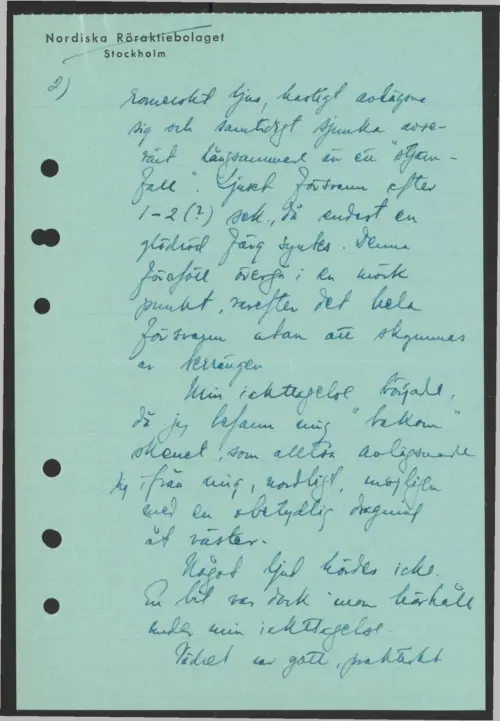 Nordiska Röraktiebolaget
Stockholm
2)
ljus, hastigt avlägsna
sig och samtidigt sjunka avse-
värt långsammare än ett "stjärn-
fall". Ljuset försvann efter
1-2 (?) sek., då endast en
glödröd färg syntes. Denna
föreföll övergå i en mörk
punkt, varefter det hela
försvann utan att skymmas
av terrängen
Min iakttagelse började,
då jag befann mig "bakom"
skenet, som alltså avlägsnade
sig ifrån mig, nordligt, möjligen
med en obetydlig dragning
åt väster.
Något ljud hördes icke.
En bil var dock inom hörhåll
under min iakttagelse.
Vädret var gott, praktiskt